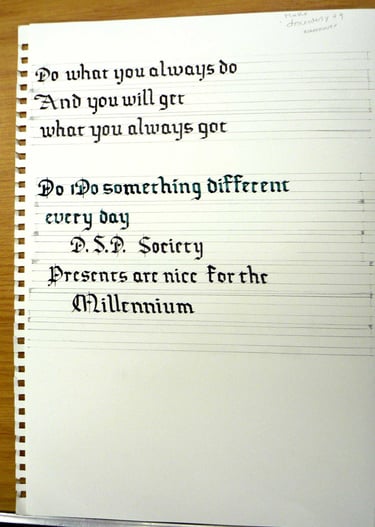 Do what you always do
And you will get
what you always got
Do Do something different
every day
D.S.D. Society
Presents are nice for the
Millennium